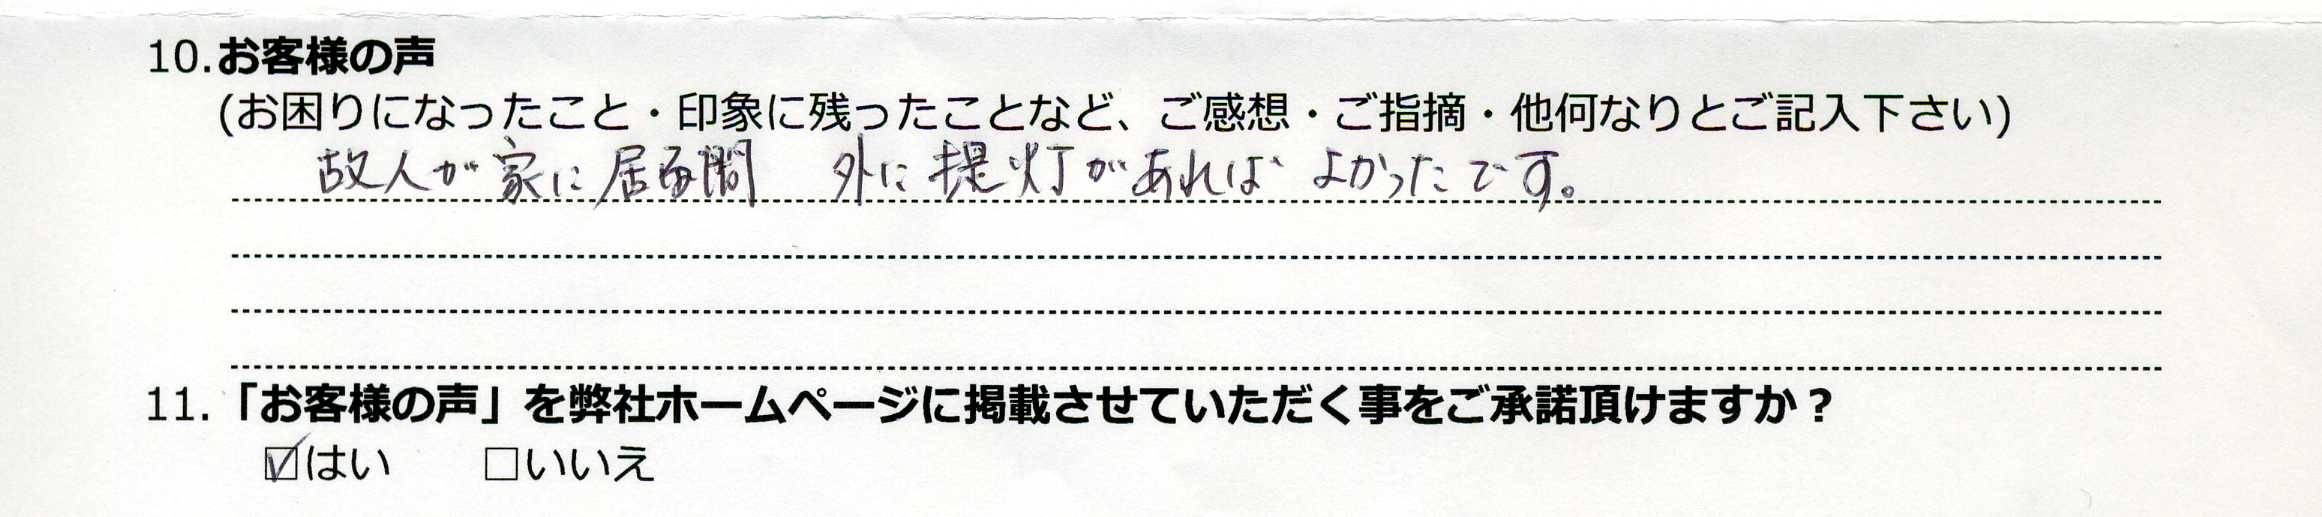 10.お客様の声
(お困りになったこと・印象に残ったことなど、ご感想・ご指摘・他何なりとご記入下さい)
故人が家に居る間　外に提灯があればよかったです。
11.「お客様の声」を弊社ホームページに掲載させていただく事をご承諾頂けますか？
☑はい　□いいえ